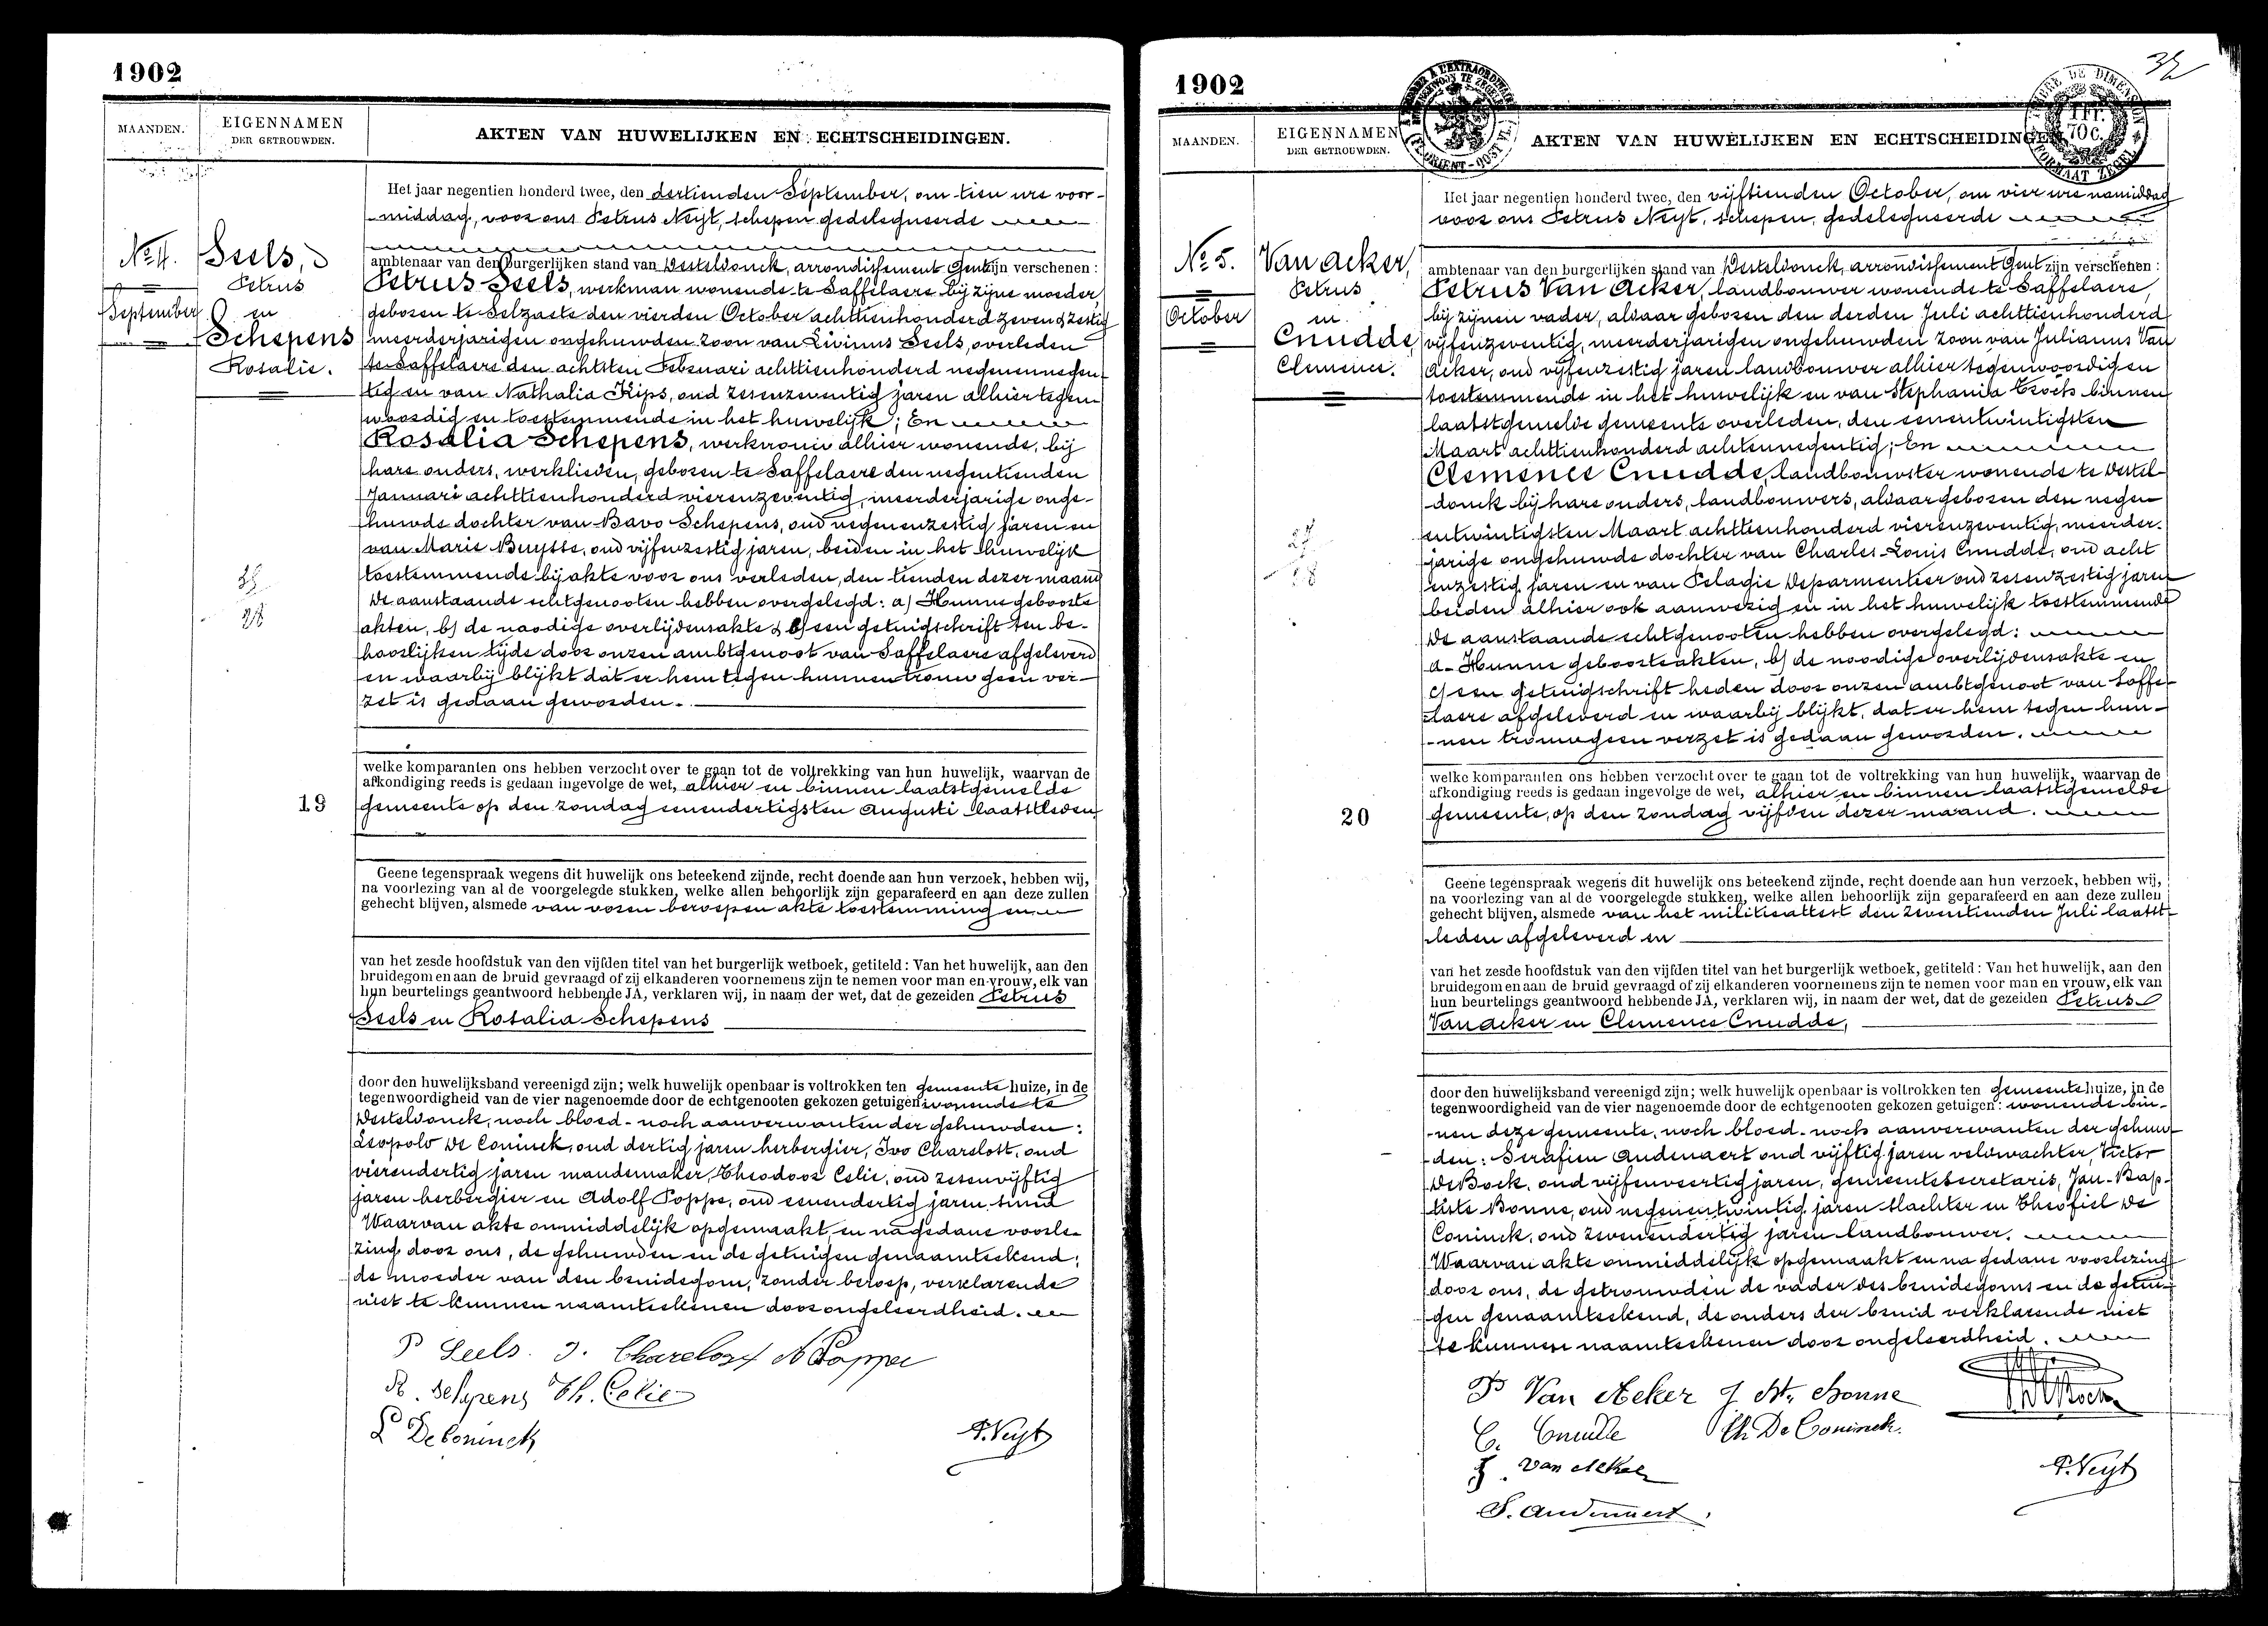 1902
MAANDEN.
EIGENNAMEN
DER GETROUWDEN.
AKTEN VAN HUWELIJKEN EN ECHTSCHEIDINGEN.
No 4.
September
Seels,
Petrus
en
Schepens
Rosalie.
35
28
19
Het jaar negentien honderd twee, den dertienden September, om tien ure voor-
middag, voor ons Petrus Neyt, schepen gedelegueerde
ambtenaar van den burgerlijken stand van Desteldonck, arrondissement Gent zijn verschenen:
Petrus Seels, werkman wonende te Saffelaere bij zijne moeder,
geboren te Selzaete den vierden October achttienhonderd zeven & zestig
meerderjarigen ongehuwden zoon van Livinus Seels, overleden
te Saffelaere den achtsten Februari achttienhonderd negenennegen-
tig en van Nathalia Kips, oud zesenzeventig jaren alhier tegen-
woordig en toestemmende in het huwelijk; En
Rosalia Schepens, werkvrouw alhier wonende, bij
hare ouders, werklieden, geboren te Saffelaere den negentienden
Januari achttienhonderd vierenzeventig, meerderjarige onge-
huwde dochter van Bavo Schepens, oud negenenzestig jaren en
van Marie Buysse, oud vijfenzestig jaren, beiden in het huwelijk
toestemmende bij akte voor ons verleden, den tienden dezer maand
De aanstaande echtgenooten hebben overgelegd: a) Hunne geboorte
akten, b) de noodige overlijdensakte & c) een getuigschrift ten be-
hoorlijken tijde door onzen ambtgenoot van Saffelaere afgeleverd
en waarbij blijkt dat er hem tegen hunnen trouw geen ver-
zet is gedaan geworden.
welke komparanten ons hebben verzocht over te gaan tot de voltrekking van hun huwelijk, waarvan de
afkondiging reeds is gedaan ingevolge de wet, alhier en binnen laatstgemelde
gemeente op den zondag eenendertigsten Augusti laatstleden
Geene tegenspraak wegens dit huwelijk ons beteekend zijnde, recht doende aan hun verzoek, hebben wij,
na voorlezing van al de voorgelegde stukken, welke allen behoorlijk zijn geparafeerd en aan deze zullen
gehecht blijven, alsmede van voren beroepen akte toestemming en
van het zesde hoofdstuk van den vijfden titel van het burgerlijk wetboek, getiteld: Van het huwelijk, aan den
bruidegom en aan de bruid gevraagd of zij elkanderen voornemens zijn te nemen voor man en vrouw, elk van
hun beurtelings geantwoord hebbende JA, verklaren wij, in naam der wet, dat de gezeiden Petrus
Seels en Rosalia Schepens
door den huwelijksband vereenigd zijn; welk huwelijk openbaar is voltrokken ten gemeentehuize, in de
tegenwoordigheid van de vier nagenoemde door de echtgenooten gekozen getuigen: wonende te
Desteldonck, noch bloed- noch aanverwanten der gehuwden:
Leopold De Coninck, oud dertig jaren herbergier, Ivo Charelott, oud
vierendertig jaren mandemaker, Theodoor Celie, oud zesenvijftig
jaren herbergier en Adolf Poppe, oud eenendertig jaren smid
Waarvan akte onmiddelijk opgemaakt en na gedane voorle-
zing door ons, de gehuwden en de getuigen genaamteekend;
de moeder van den bruidegom, zonder beroep, verklarende
niet te kunnen naamteekenen door ongeleerdheid.
P Seels. I. Charelott A Poppe
R. Schepens Th. Celie
L De Coninck
P. Neyt
1902
MAANDEN.
EIGENNAMEN
DER GETROUWDEN.
AKTEN VAN HUWELIJKEN EN ECHTSCHEIDINGEN
1 Fr.
70 c.
No 5.
October
Van Acker,
Petrus
en
Cnudde,
Clemence.
20
Het jaar negentien honderd twee, den vijftienden October, om vier ure namiddag
voor ons Petrus Neyt, schepen, gedelegueerde
ambtenaar van den burgerlijken stand van Desteldonck, arrondissement Gent zijn verschenen:
Petrus Van Acker, landbouwer wonende te Saffelaere,
bij zijnen vader, aldaar geboren den derden Juli achttienhonderd
vijfenzeventig, meerderjarigen ongehuwden zoon van Julianus Van
Acker, oud vijfenzestig jaren landbouwer alhier tegenwoordig en
toestemmende in het huwelijk en van Stephania Croch binnen
laatstgemelde gemeente overleden, den eenentwintigsten
Maart achttienhonderd achtennegentig; En
Clemence Cnudde, landbouwster wonende te Destel-
donck bij hare ouders, landbouwers, aldaar geboren den negen
entwintigsten Maart achttienhonderd vierenzeventig, meerder-
jarige ongehuwde dochter van Charles-Louis Cnudde, oud acht
enzestig jaren en van Pelagie Deparmentier oud zesenzestig jaren
beiden alhier ook aanwezig en in het huwelijk toestemmende
De aanstaande echtgenooten hebben overgelegd:
a- Hunne geboorteakten, b) de noodige overlijdensakte en
c) een getuigschrift heden door onzen ambtgenoot van Saffe-
laere afgeleverd en waarbij blijkt, dat er hem tegen hun-
nen trouw geen verzet is gedaan geworden.
welke komparanten ons hebben verzocht over te gaan tot de voltrekking van hun huwelijk, waarvan de
afkondiging reeds is gedaan ingevolge de wet, alhier en binnen laatstgemelde
gemeente, op den zondag vijfden dezer maand.
Geene tegenspraak wegens dit huwelijk ons beteekend zijnde, recht doende aan hun verzoek, hebben wij,
na voorlezing van al de voorgelegde stukken, welke allen behoorlijk zijn geparafeerd en aan deze zullen
gehecht blijven, alsmede van het militieattest den zeventienden Juli laatst-
leden afgeleverd en
van het zesde hoofdstuk van den vijfden titel van het burgerlijk wetboek, getiteld: Van het huwelijk, aan den
bruidegom en aan de bruid gevraagd of zij elkanderen voornemens zijn te nemen voor man en vrouw, elk van
hun beurtelings geantwoord hebbende JA, verklaren wij, in naam der wet, dat de gezeiden Petrus
Van Acker en Clemence Cnudde,
door den huwelijksband vereenigd zijn; welk huwelijk openbaar is voltrokken ten gemeentehuize, in de
tegenwoordigheid van de vier nagenoemde door de echtgenooten gekozen getuigen: wonende bin-
nen deze gemeente, noch bloed- noch aanverwanten der gehuw-
den: Serafien Audenaert oud vijftig jaren veldwachter, Victor
De Bock, oud vijfenveertig jaren, gemeentesecretaris, Jan-Bap-
tiste Bonne, oud negenentwintig jaren slachter en Theofiel De
Coninck, oud zevenendertig jaren landbouwer.
Waarvan akte onmiddelijk opgemaakt en na gedane voorlezing
door ons, de getrouwden de vader des bruidegoms en de getui-
gen genaamteekend, de ouders der bruid verklarende niet
te kunnen naamteekenen door ongeleerdheid.
P Van Acker J Bte Bonne
C. Cnudde Th De Coninck
J. Van Acker
S. Audenaert
P. Neyt